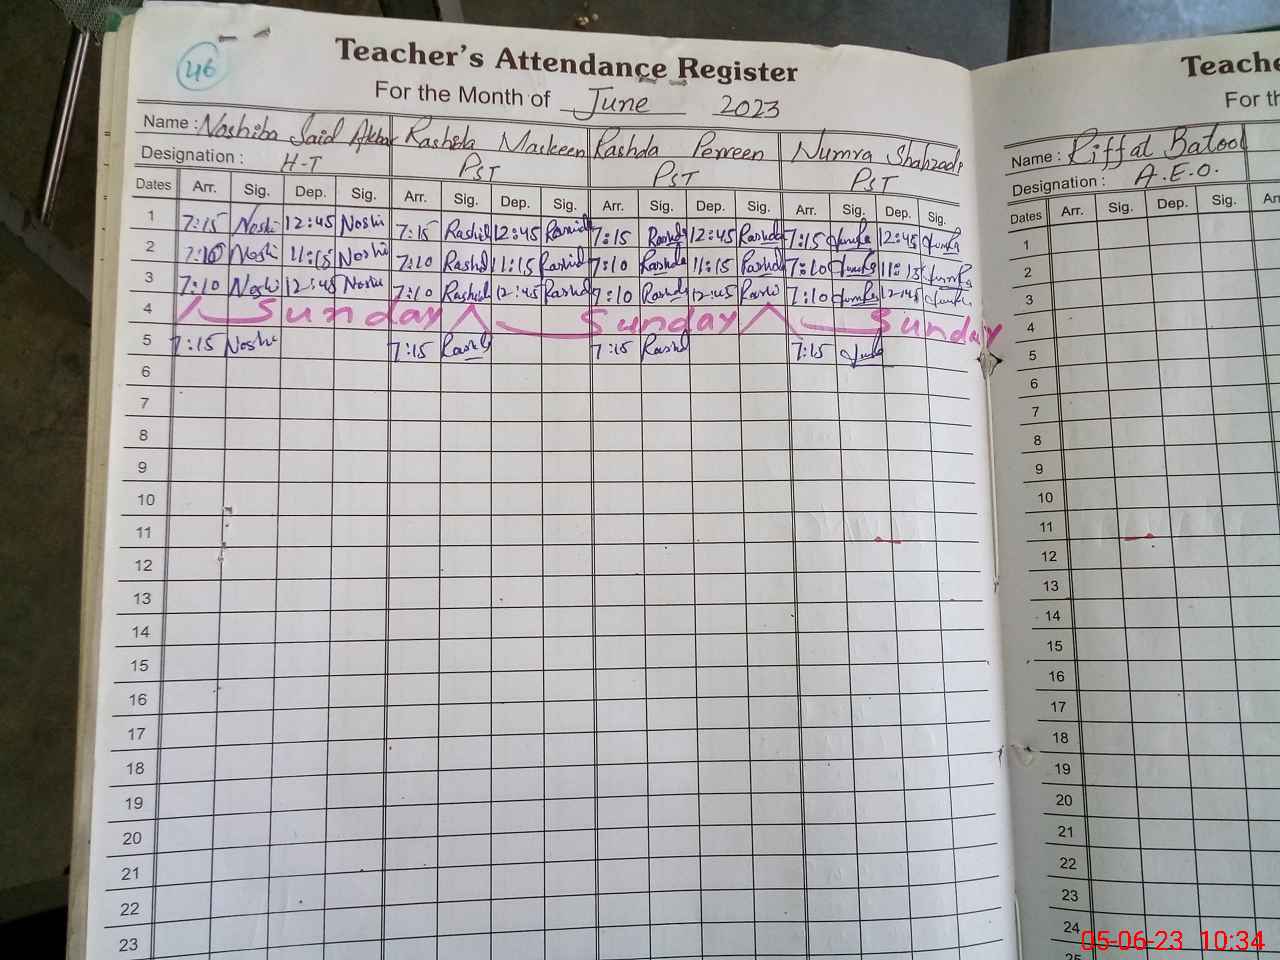 46
Teacher's Attendance Register
For the Month of June 2023
Name : Noshiba Said Akbar Rashida Maskeen Rashda Perreen Numra Shahzadi
Designation : H-T PST PST PST
Dates Arr. Sig. Dep. Sig. Arr. Sig. Dep. Sig. Arr. Sig. Dep. Sig. Arr. Sig. Dep. Sig.
1 7:15 Noshi 12:45 Noshi 7:15 Rashid 12:45 Rashid 7:15 Rashda 12:45 Rashda 7:15 12:45
2 7:10 Noshi 11:15 Noshi 7:10 Rashid 11:15 Rashid 7:10 Rashda 11:15 Rashd 7:10 11:15
3 7:10 Noshi 12:45 Noshi 7:10 Rashid 12:45 Rashid 7:10 Rashda 12:45 Rashi 7:10 12:45
4 Sunday Sunday Sunday
5 7:15 Noshi 7:15 Rashd 7:15 Rashd 7:15
6
7
8
9
10
11
12
13
14
15
16
17
18
19
20
21
22
23
Teache
For th
Name : Riffat Batool
Designation : A.E.O.
Dates Arr. Sig. Dep. Sig. Arr
1
2
3
4
5
6
7
8
9
10
11
12
13
14
15
16
17
18
19
20
21
22
23
24
25
05-06-23 10:34